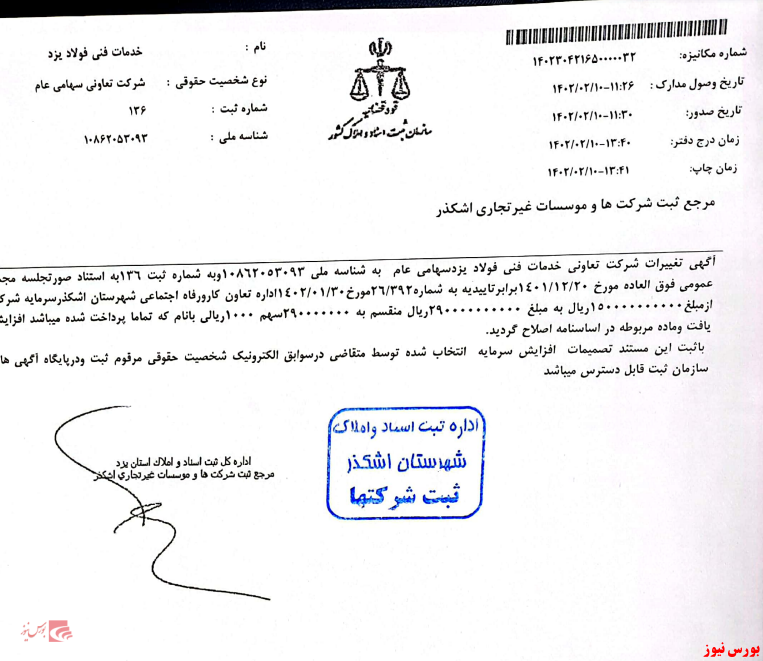 شماره مکانیزه: ۱۴۰۲۳۰۴۲۱۶۵۰۰۰۰۰۳۲
تاریخ وصول مدارک : ۱۱:۲۶-۱۴۰۲/۰۲/۱۰
تاریخ صدور: ۱۱:۳۰-۱۴۰۲/۰۲/۱۰
زمان درج دفتر: ۱۳:۴۰-۱۴۰۲/۰۲/۱۰
زمان چاپ: ۱۳:۴۱-۱۴۰۲/۰۲/۱۰
قوه قضائیه
سازمان ثبت اسناد و املاک کشور
نام : خدمات فنی فولاد یزد
نوع شخصیت حقوقی : شرکت تعاونی سهامی عام
شماره ثبت : ۱۳۶
شناسه ملی : ۱۰۸۶۲۰۵۳۰۹۳
مرجع ثبت شرکت ها و موسسات غیرتجاری اشکذر
آگهی تغییرات شرکت تعاونی خدمات فنی فولاد یزدسهامی عام به شناسه ملی ۱۰۸۶۲۰۵۳۰۹۳وبه شماره ثبت ۱۳۶به استناد صورتجلسه
عمومی فوق العاده مورخ ۱۴۰۱/۱۲/۲۰برابرتاییدیه به شماره۲۶/۳۹۲مورخ۱۴۰۲/۰۱/۳۰اداره تعاون کارورفاه اجتماعی شهرستان اشکذرسرمایه
ازمبلغ۱۵۰۰۰۰۰۰۰۰۰۰ریال به مبلغ ۲۹۰۰۰۰۰۰۰۰۰۰ریال منقسم به ۲۹۰۰۰۰۰۰۰سهم ۱۰۰۰ریالی بانام که تماما پرداخت شده میباشد
یافت وماده مربوطه در اساسنامه اصلاح گردید.
باثبت این مستند تصمیمات افزایش سرمایه انتخاب شده توسط متقاضی درسوابق الکترونیک شخصیت حقوقی مرقوم ثبت ودرپایگاه آگهی
سازمان ثبت قابل دسترس میباشد
اداره کل ثبت اسناد و املاک استان یزد
مرجع ثبت شرکت ها و موسسات غیرتجاری اشکذر
اداره ثبت اسناد و املاک
شهرستان اشکذر
ثبت شرکتها
بورس نیوز
بورس نیوز